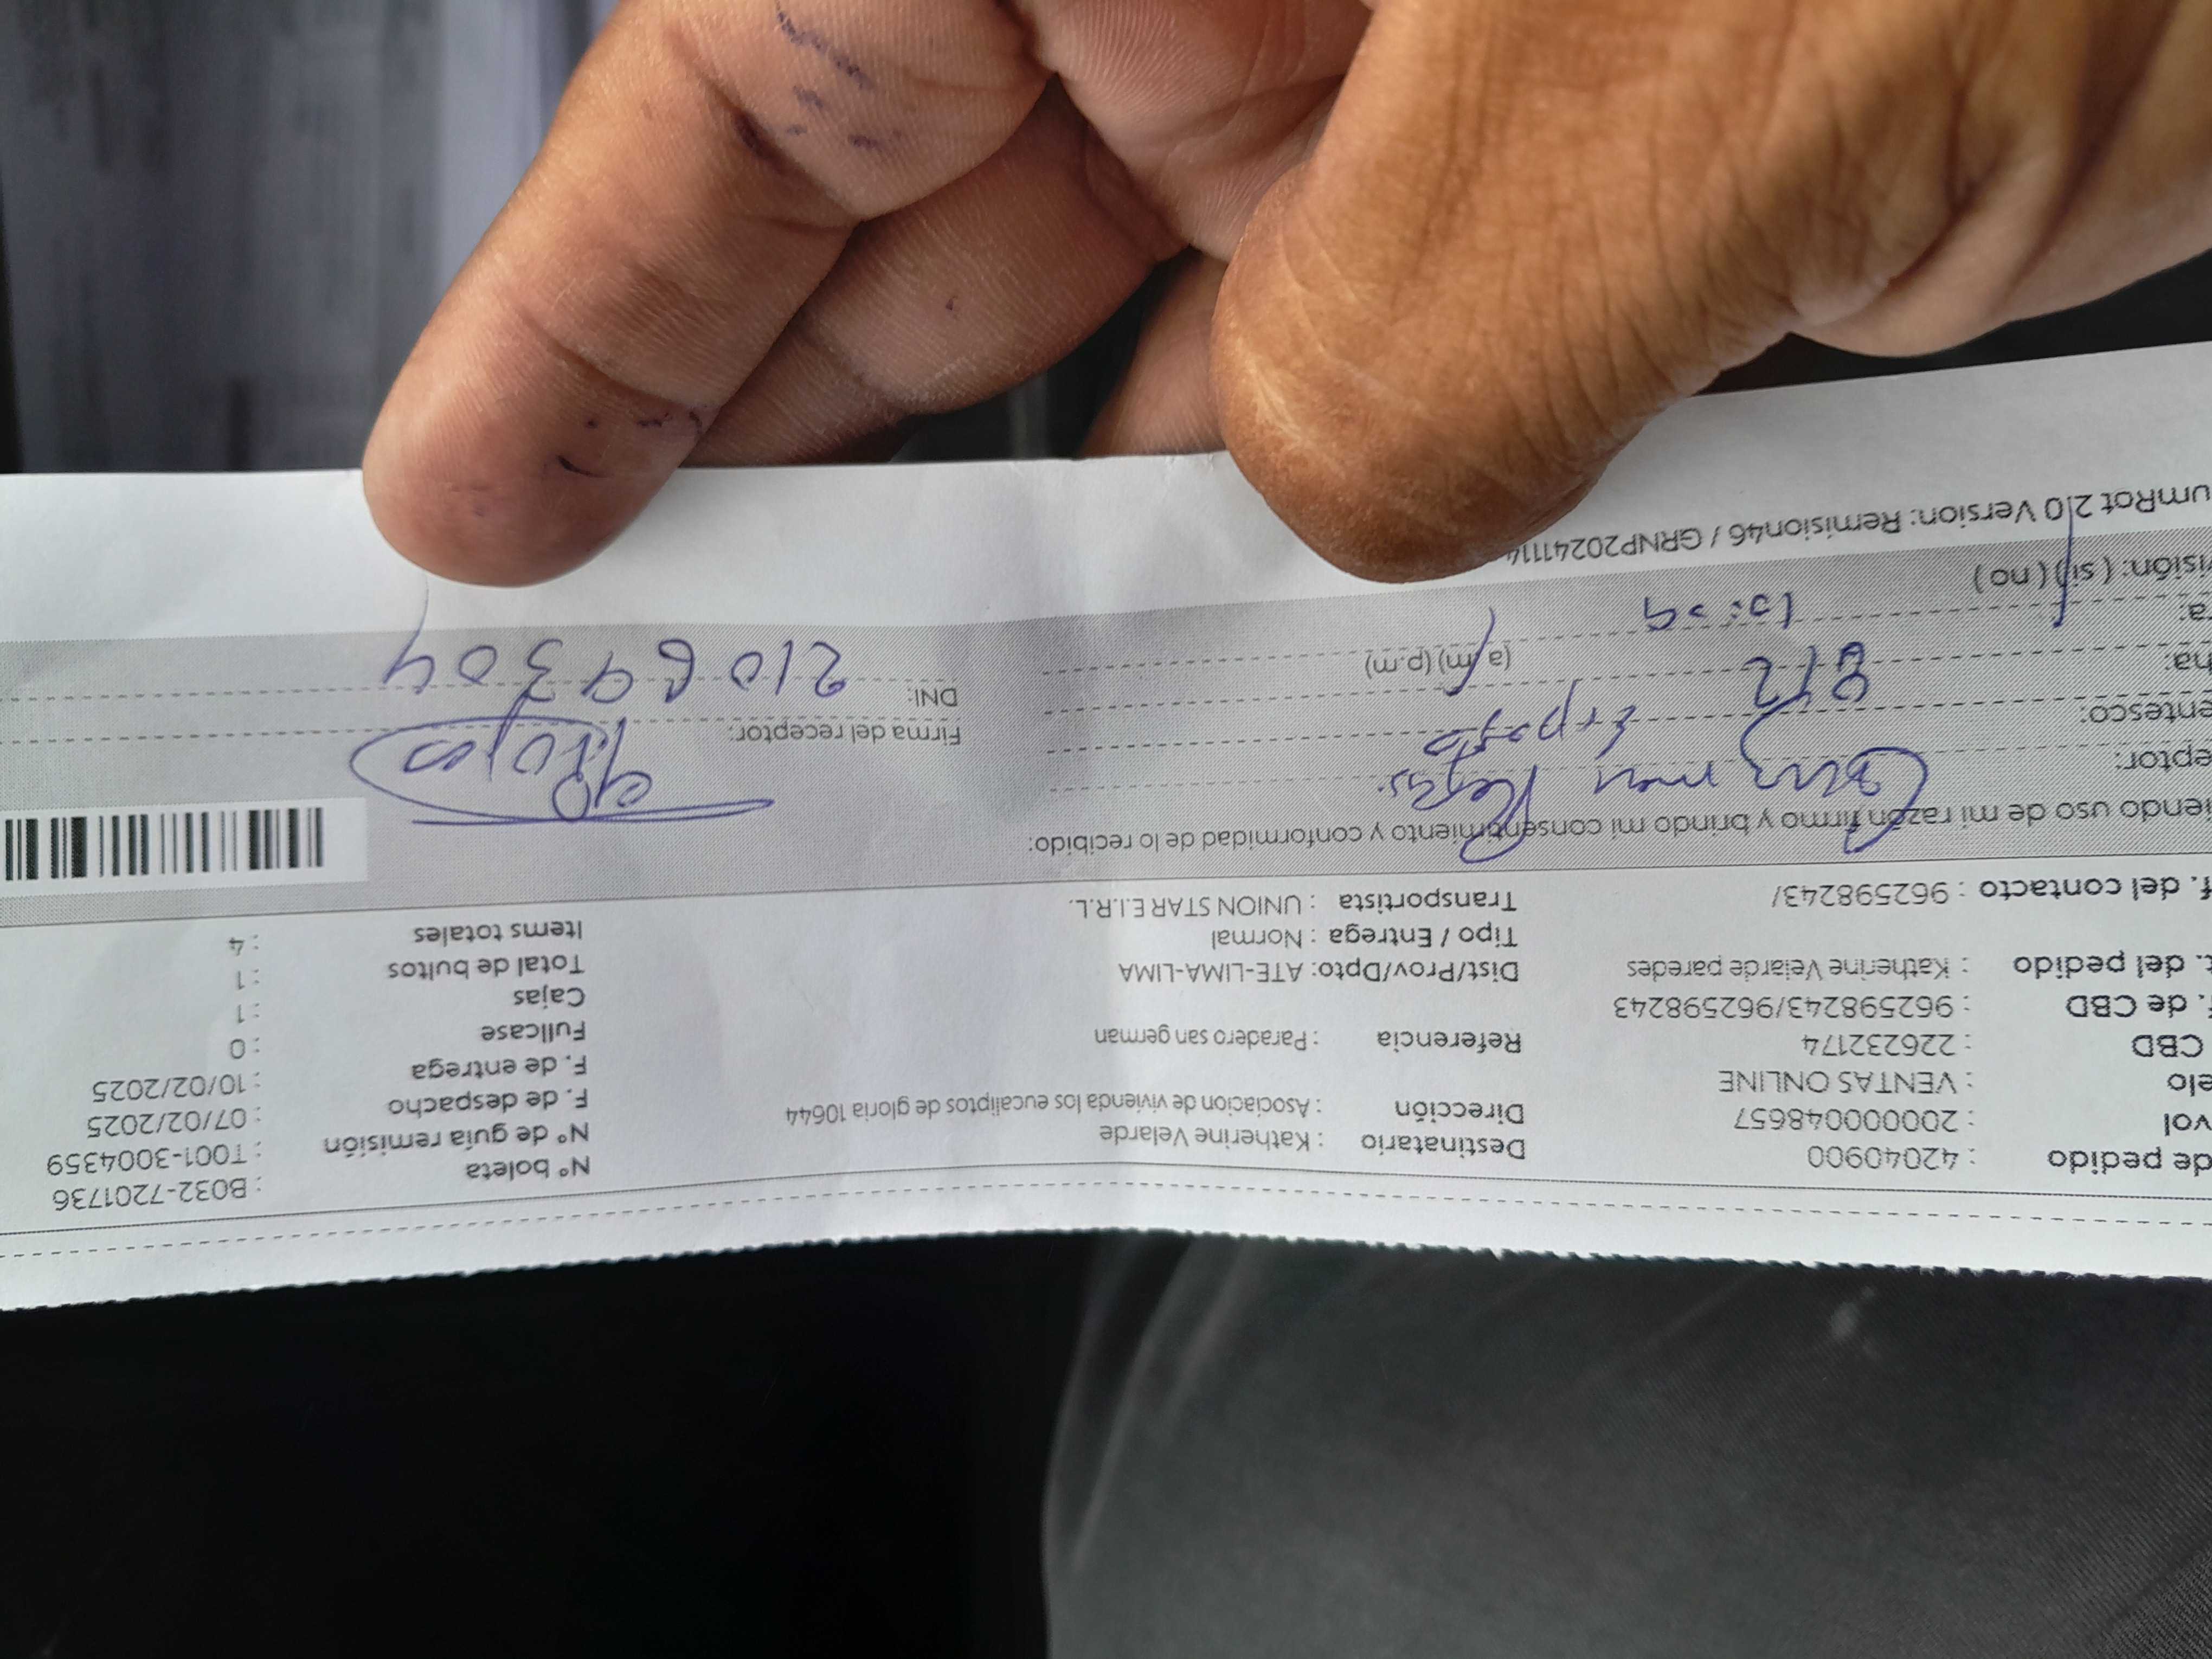 de pedido : 42040900 Destinatario : Katherine Velarde N° boleta : B032-7201736
vol : 20000048657 Dirección : Asociacion de vivienda los eucaliptos de gloria 10644 N° de guía remisión : T001-3004359
elo : VENTAS ONLINE F. de despacho : 07/02/2025
CBD : 226232174 Referencia : Paradero san german F. de entrega : 10/02/2025
f. de CBD : 962598243/962598243 Fullcase : 0
t. del pedido : Katherine Velarde paredes Dist/Prov/Dpto: ATE-LIMA-LIMA Cajas : 1
Tipo / Entrega : Normal Total de bultos : 1
f. del contacto : 962598243/ Transportista : UNION STAR E.I.R.L. Items totales : 4
iendo uso de mi razón firmo y brindo mi consentimiento y conformidad de lo recibido:
eptor:
entesco: Firma del receptor:
ha: 8/2 DNI: 21069304
a: (a.m) (p.m)
isión: ( si ) ( no )
umRot 2.0 Version: Remision46 / GRNP20241114